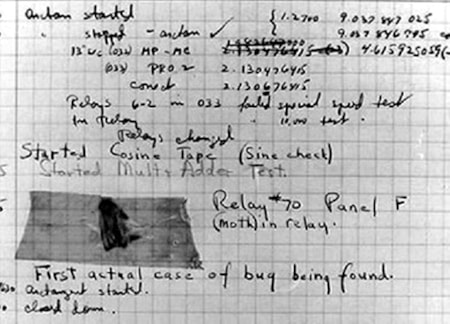 arctan started { 1.2700 9.037 847 025
" stopped - arctan ✓ 9.037 846 795
13"uc (032) MP - MC 4.615925059(-
(033) PRO. 2 2.130476415
correct 2.130676415
Relays 6-2 in 033 failed special speed test
in relay " 10.000 test .
Relays changed
Started Cosine Tape (Sine check)
Started Mult + Adder Test.
Relay #70 Panel F
(moth) in relay.
First actual case of bug being found.
antangent started.
closed down.